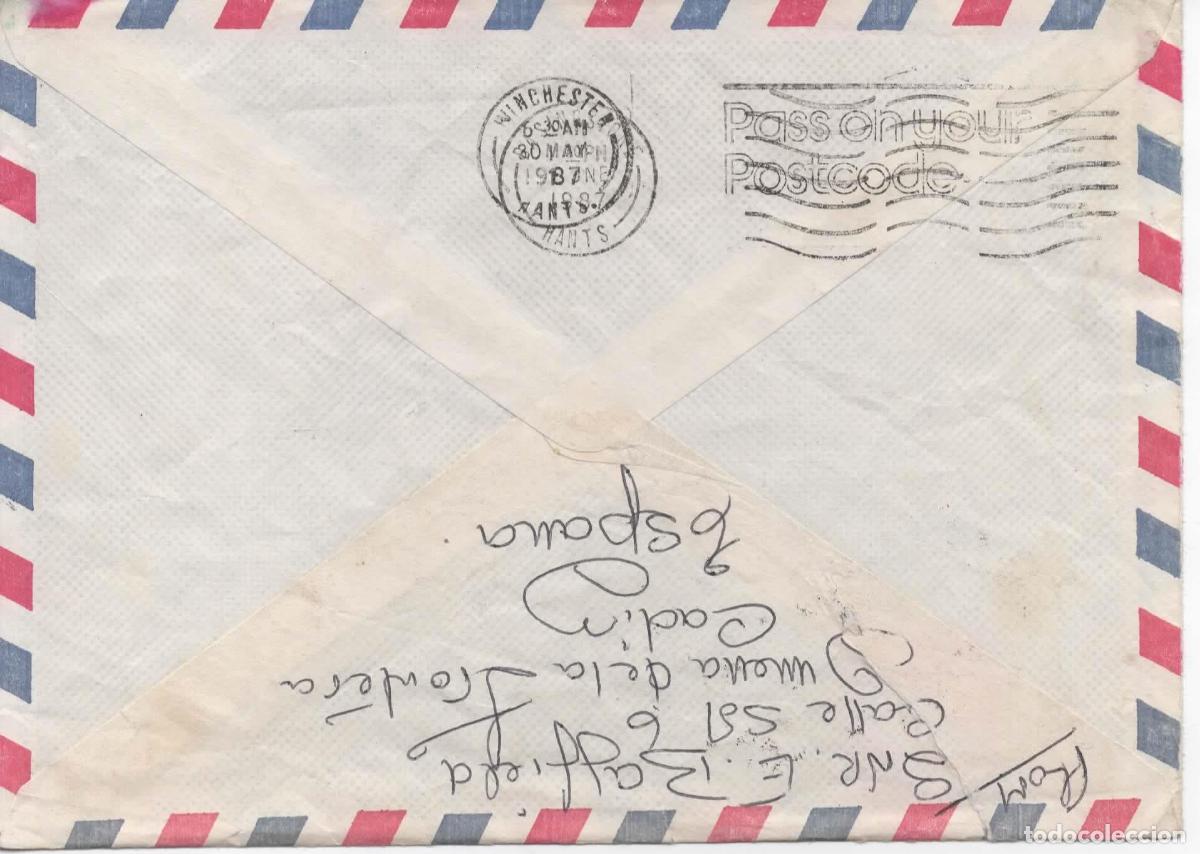 WINCHESTER
30 MAY
1987
HANTS
HANTS
Pass on your
Postcode
From
SNR. E. Baffiela
Calle SSI 6
Jimena de la Frontera
Cadiz
España
todocoleccion